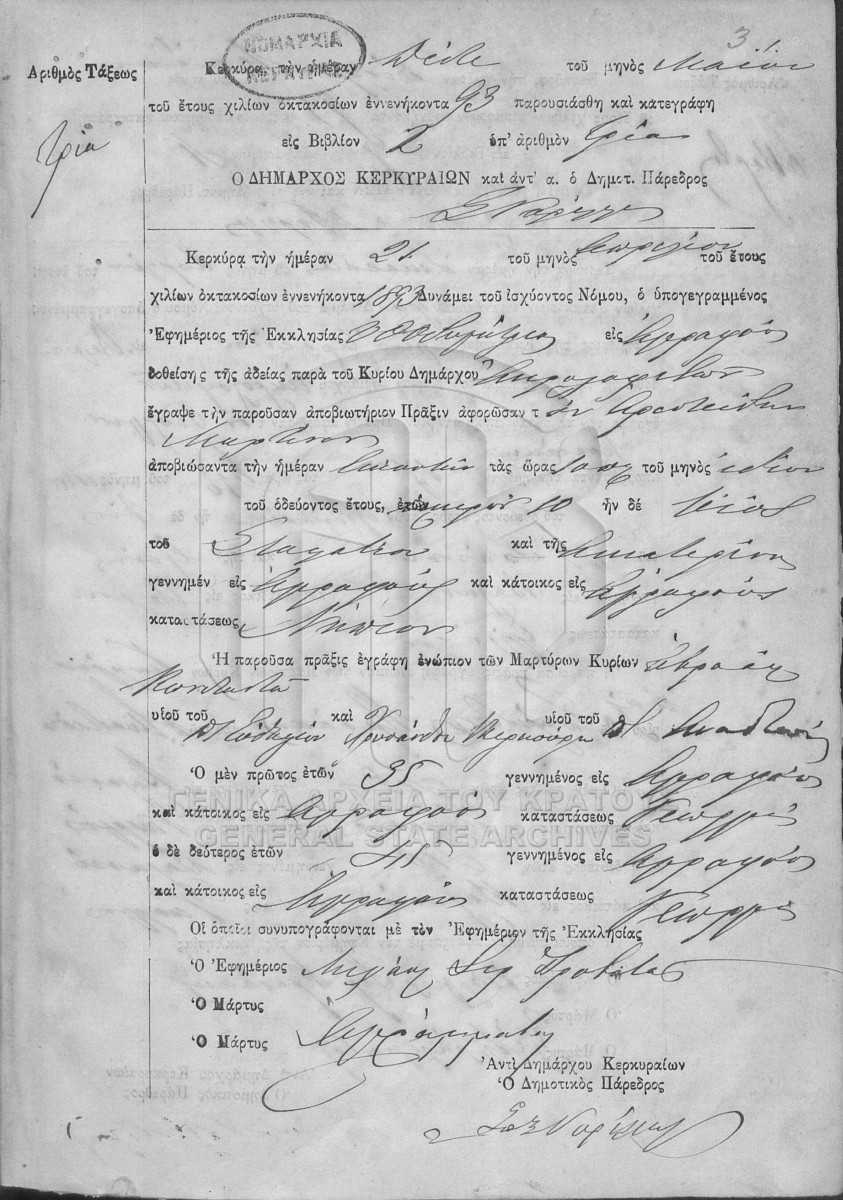 3
ΝΟΜΑΡΧΙΑ ΚΕΡΚΥΡΑΣ
Ἀριθμὸς Τάξεως
τρία
Κερκύρᾳ τὴν ἡμέραν πέντε τοῦ μηνὸς Μαΐου
τοῦ ἔτους χιλίων ὀκτακοσίων ἐννενήκοντα 93 παρουσιάσθη καὶ κατεγράφη
εἰς Βιβλίον 2 ὑπ' ἀριθμὸν τρία
Ο ΔΗΜΑΡΧΟΣ ΚΕΡΚΥΡΑΙΩΝ καὶ ἀντ' α. ὁ Δημοτ. Πάρεδρος
Κερκύρᾳ τὴν ἡμέραν 21 τοῦ μηνὸς Ἀπριλίου τοῦ ἔτους
χιλίων ὀκτακοσίων ἐννενήκοντα 1893 Δυνάμει τοῦ ἰσχύοντος Νόμου, ὁ ὑπογεγραμμένος
Ἐφημέριος τῆς Ἐκκλησίας εἰς Ἀγραφοὺς
δοθείσης τῆς ἀδείας παρὰ τοῦ Κυρίου Δημάρχου
ἔγραψε τὴν παροῦσαν ἀποβιωτήριον Πρᾶξιν ἀφορῶσαν τ ὸν Ἀριστείδην
Μαρτίνον
ἀποβιώσαντα τὴν ἡμέραν εἰκοστὴν τὰς ὥρας 10 πμ τοῦ μηνὸς ἰδίου
τοῦ ὁδεύοντος ἔτους, ἐτῶν ἡμερῶν 10 ἦν δὲ υἱὸς
τοῦ Σταματίου καὶ τῆς Αἰκατερίνης
γεννημέν εἰς Ἀγραφοὺς καὶ κάτοικος εἰς Ἀγραφοὺς
καταστάσεως Νήπιον
Ἡ παροῦσα πρᾶξις ἐγράφη ἐνώπιον τῶν Μαρτύρων Κυρίων
υἱοῦ τοῦ καὶ υἱοῦ τοῦ
Ὁ μὲν πρῶτος ἐτῶν 35 γεννημένος εἰς Ἀγραφοὺς
καὶ κάτοικος εἰς Ἀγραφοὺς καταστάσεως Γεωργὸς
ὁ δὲ δεύτερος ἐτῶν 45 γεννημένος εἰς Ἀγραφοὺς
καὶ κάτοικος εἰς Ἀγραφοὺς καταστάσεως Γεωργὸς
Οἱ ὁποῖοι συνυπογράφονται μὲ τὸν Ἐφημέριον τῆς Ἐκκλησίας
Ὁ Ἐφημέριος
Ὁ Μάρτυς
Ὁ Μάρτυς Ἀγράμματοι
Ἀντὶ Δημάρχου Κερκυραίων
Ὁ Δημοτικὸς Πάρεδρος
ΓΕΝΙΚΑ ΑΡΧΕΙΑ ΤΟΥ ΚΡΑΤΟΥΣ
GENERAL STATE ARCHIVES